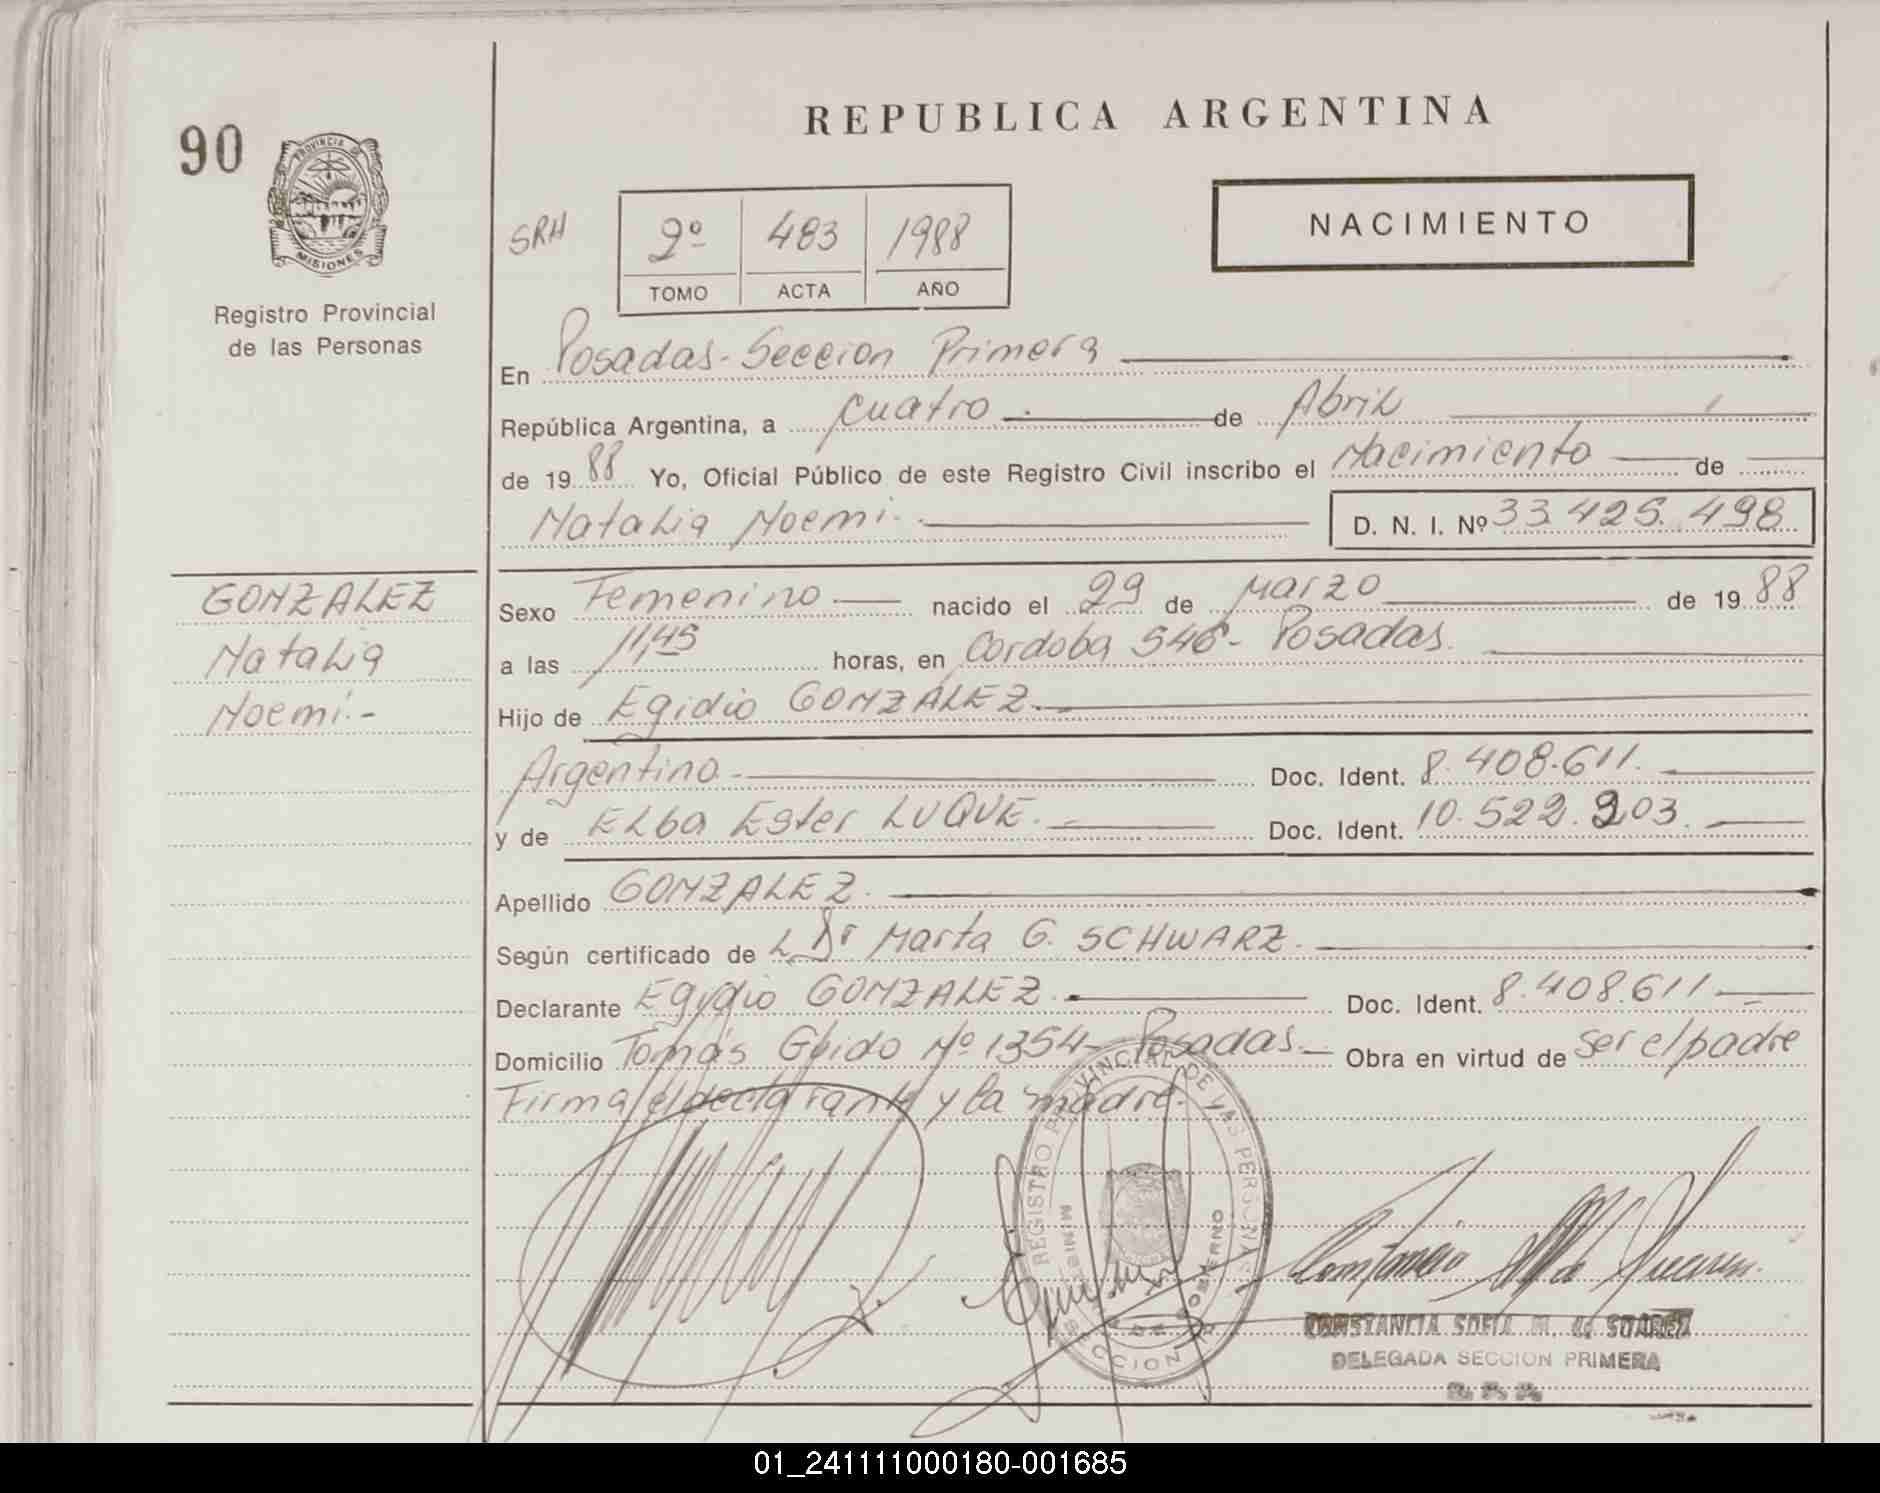 90
PROVINCIA DE
MISIONES
Registro Provincial
de las Personas
REPUBLICA ARGENTINA
NACIMIENTO
SRH
2º 483 1988
TOMO ACTA AÑO
En Posadas - Seccion Primera
República Argentina, a cuatro de Abril
de 1988 Yo, Oficial Público de este Registro Civil inscribo el Nacimiento de
Natalia Noemi.- D. N. I. Nº 33.425.498
GONZALEZ
Natalia
Noemi.-
Sexo Femenino nacido el 29 de Marzo de 1988
a las 11,45 horas, en Cordoba 546 - Posadas.
Hijo de Egidio GONZALEZ.
Argentino.- Doc. Ident. 8.408.611.
y de Elba Ester LUQUE. Doc. Ident. 10.522.903.
Apellido GONZALEZ.
Según certificado de Dr Marta G. SCHWARZ.
Declarante Egydio GONZALEZ. Doc. Ident. 8.408.611
Domicilio Tomás Guido Nº 1354 - Posadas. Obra en virtud de ser el padre
Firma el declarante y la madre.
REGISTRO PROVINCIAL DE LAS PERSONAS
SECCION
GOBIERNO
CONSTANCIA SOFIA M. de SUAREZ
DELEGADA SECCION PRIMERA
R. P. P.
01_241111000180-001685